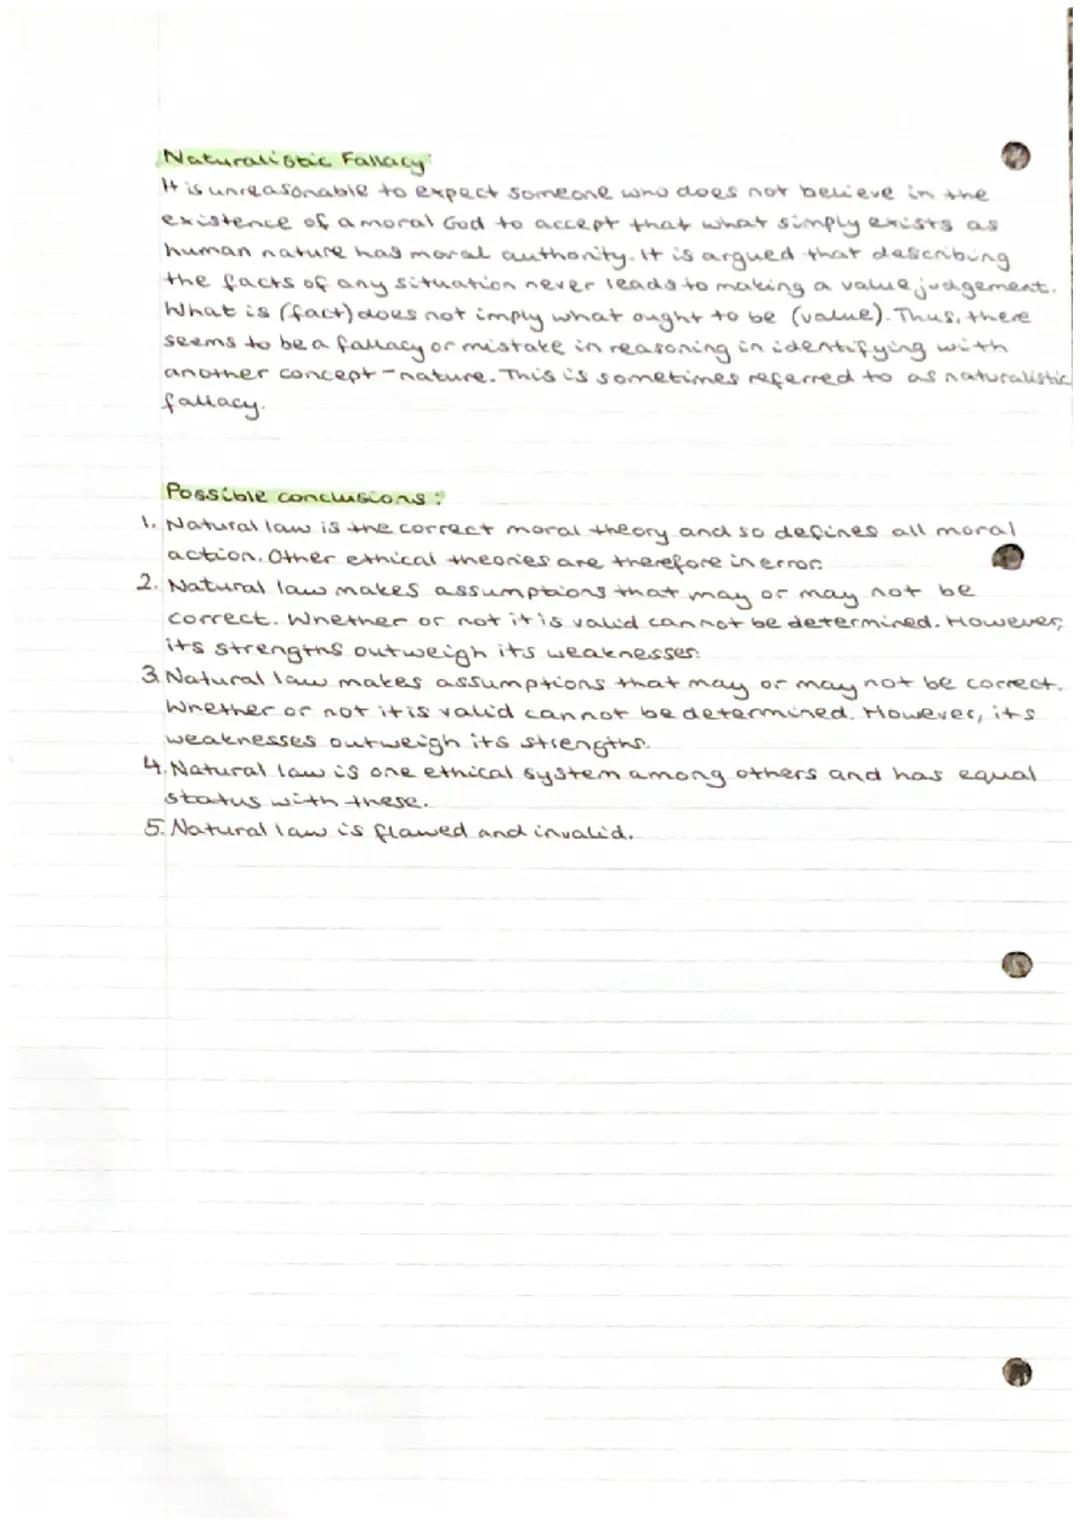 Naturalistic Fallacy:
It is unreasonable to expect someone who does not believe in the
existence of a moral God to accept that what simply exists as
human nature has moral authority. It is argued that describing
the facts of any situation never leads to making a value judgement.
What is (fact) does not imply what ought to be (value). Thus, there
seems to be a fallacy or mistake in reasoning in identifying with
another concept - nature. This is sometimes referred to as naturalistic
fallacy.
Possible conclusions:
1. Natural law is the correct moral theory and so defines all moral
action. Other ethical theories are therefore in error.
2. Natural law makes assumptions that may or may not be
correct. Whether or not it is valid cannot be determined. However,
its strengths outweigh its weaknesses.
3. Natural law makes assumptions that may or may not be correct.
Whether or not it is valid cannot be determined. However, its
weaknesses outweigh its strengths.
4. Natural law is one ethical system among others and has equal
status with these.
5. Natural law is flawed and invalid.